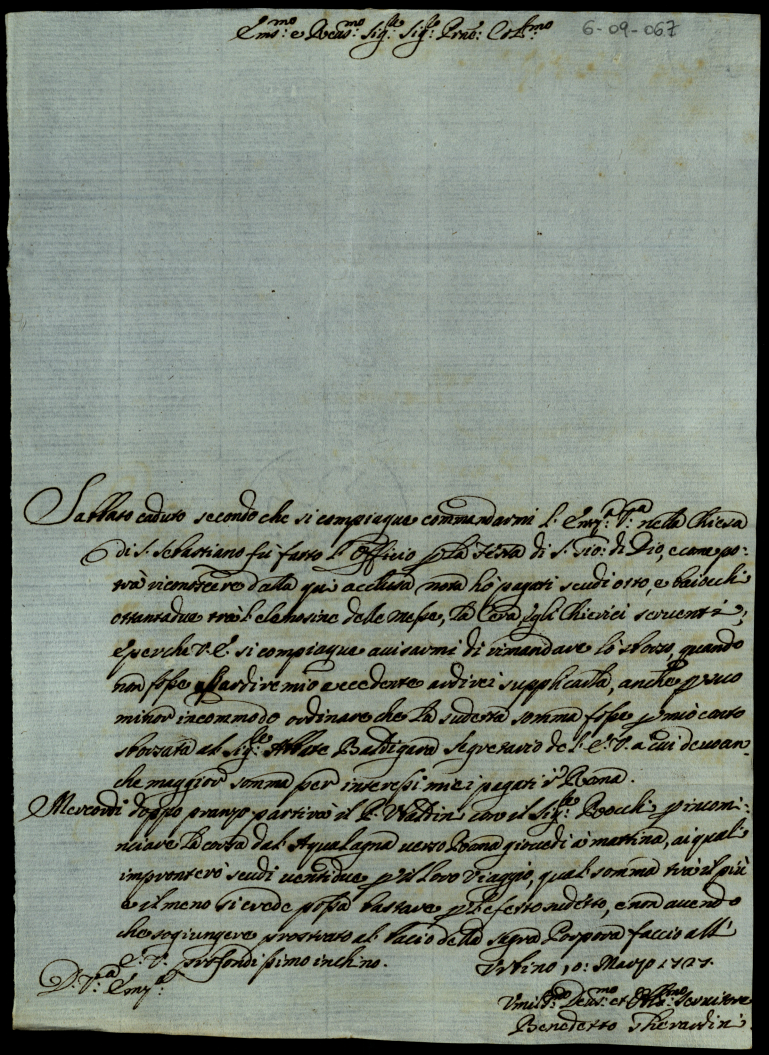 Em.mo e Reu.mo Sig.re Sig.re Prõn: Col.mo
6-09-067
Sabbato caduto secondo che si compiaque commandarmi l'Em.a V.a nella Chiesa
di S. Sebastiano fù fatto l'Officio p la Festa di S. Gio: di Dio, e come po-
trà riconoscere dalla qui acclusa nota hò pagati scudi otto, e baiochi
ottantadue trà l'elemosine delle messe, la Cera, e gli Chierici serventi;
e perche V.E. si compiaque auisarmi di rimandare lo sborso, quando
non fosse ardire mio eccedente ardirei supplicarla, anche p suo
minor incommodo ordinare che la sudetta somma fosse p mio conto
sborzata al Sig.re Abbate Baldigara Segretario de l'E.V. a cui deuo an-
che maggior somma per interessi miei pagati in Roma.
Mercordi doppo pranzo partirà il P. Valdin con il Sig.re Rochi p incomi-
nciare la corsa dal Aqualagna uerso Roma giouedi à mattina, ai quali
impronterò scudi uentidue p il loro Viaggio, qual somma trà il più
e il meno si crede possa bastare p l'efetto sudetto, e non auendo
che sogiungere prostrato al bacio della Sagra Porpora faccio all'
E.V. profondissimo inchino. Urbino 10: Marzo 1727.
D. V.a Em.a
Vmil.mo Deu.mo et Obl.mo Seruitore
Benedetto Gherardini